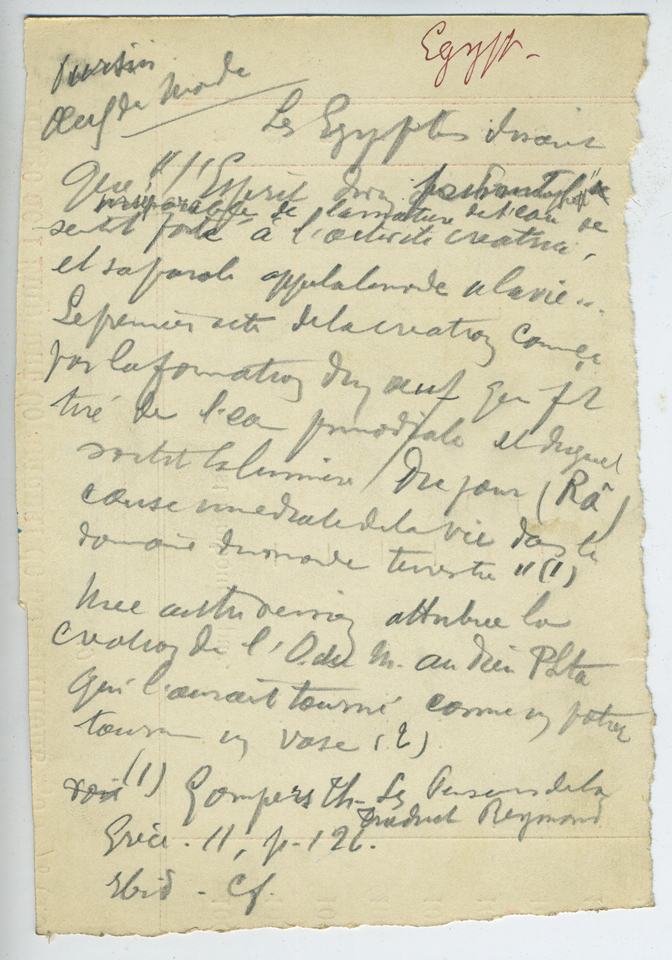 Egypt-
Oeuf du Monde
Les Egyptiens disaient
Que "l'Esprit divin
inséparable de la matière de l'eau
sentit porté à l'activité créatrice,
et sa parole appela le monde à la vie".
Le premier acte de la création commença
par la formation d'un œuf qui fut
tiré de l'eau primordiale et duquel
sortit la lumière du jour (Râ)
cause immédiate de la vie dans le
domaine du monde terrestre "(1)
Une autre version attribue la
création de l'O. du M. au dieu Phta
qui l'aurait tourné comme un potier
tourne un vase (2)
voir (1) Gomperz Th- Les Penseurs de la
traduct Reymond
Grèce. 11, p. 126.
Ibid - Cf.